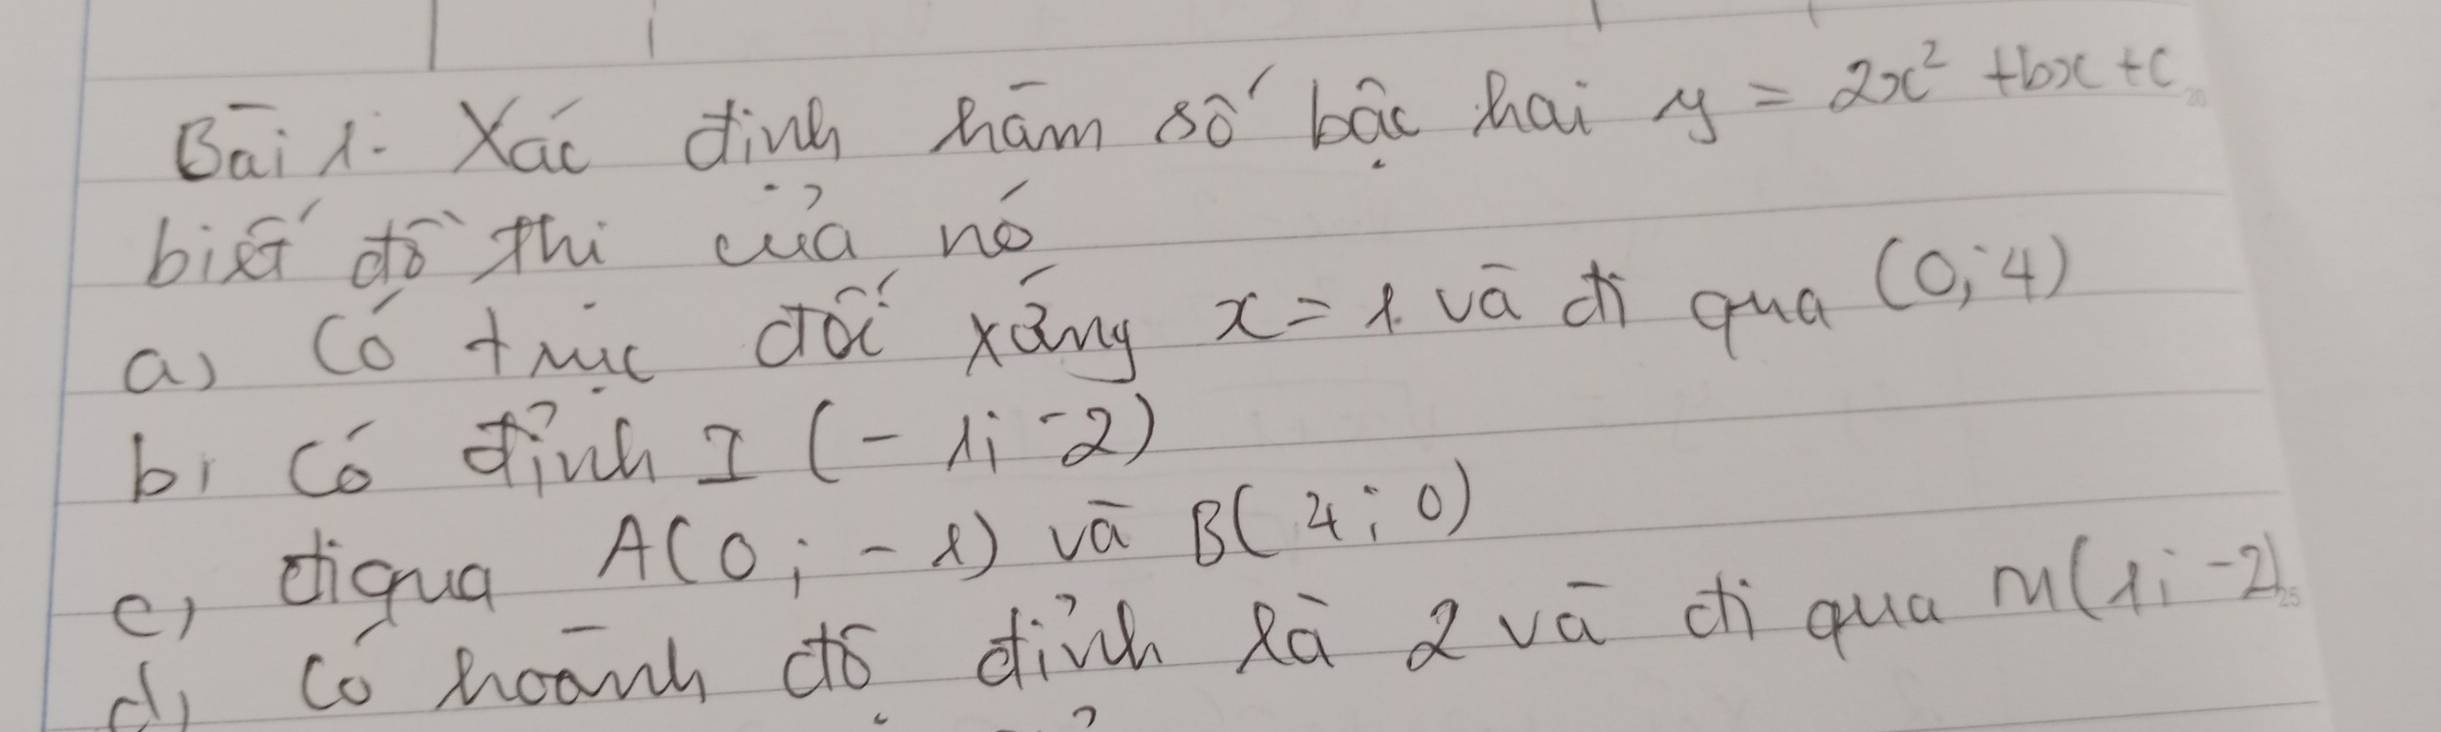 Bài 1: Xác định hàm số bậc hai y = 2x² + bx + c
biết đồ thị của nó
a) Có trục đối xứng x = 1 và đi qua (0; 4)
b) Có đỉnh I (-1; -2)
c) đi qua A(0; -1) và B(4; 0)
d) Có hoành độ đỉnh là 2 và đi qua M(1; -2)